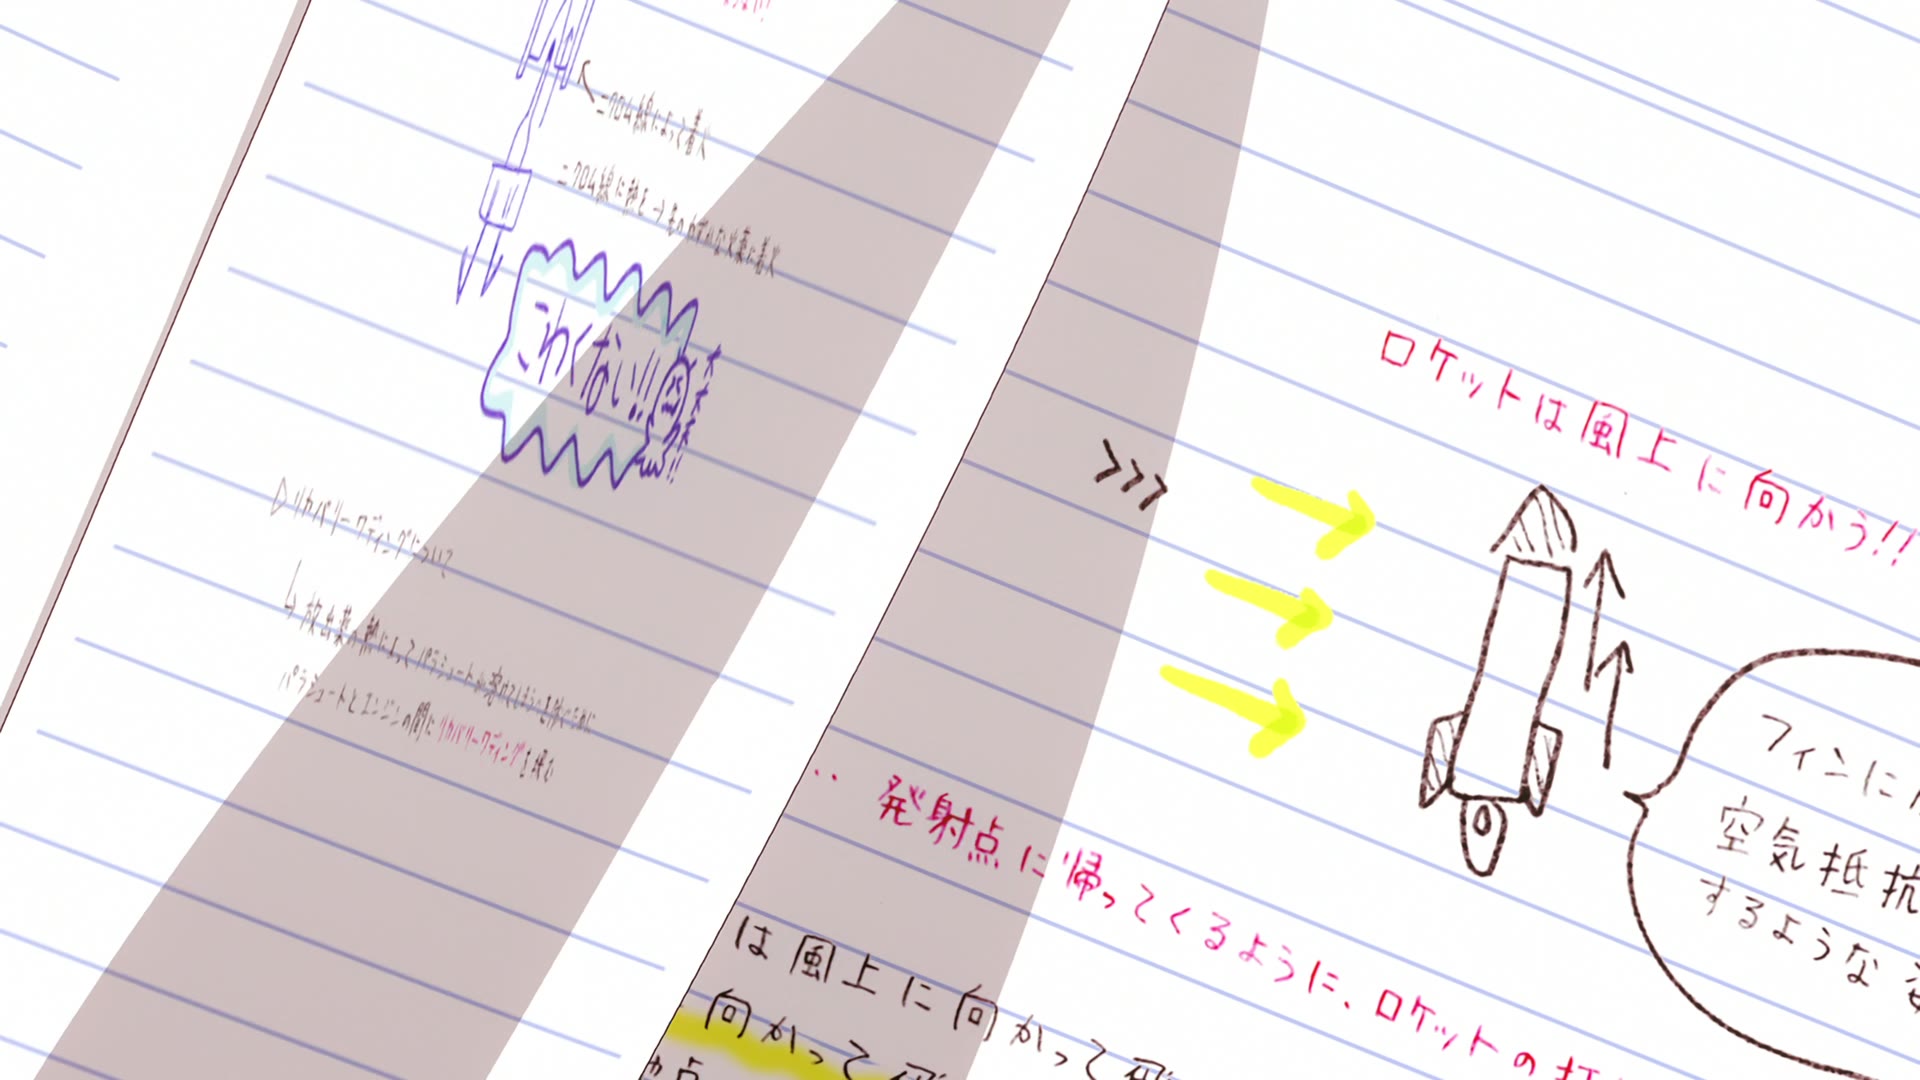 ニクロム線によって着火
ニクロム線に熱を→先のわずかな火薬に着火
こわくない!!
▷リカバリーワディングについて
↳放出薬の熱によってパラシュートが溶けてしまうを防ぐために
パラシュートとエンジンの間にリカバリーワディングを挟む
>>>
ロケットは風上に向かう!!
フィンに
空気抵抗
するような
発射点に帰ってくるように、ロケットの打
は風上に向かって飛
向かって飛
点